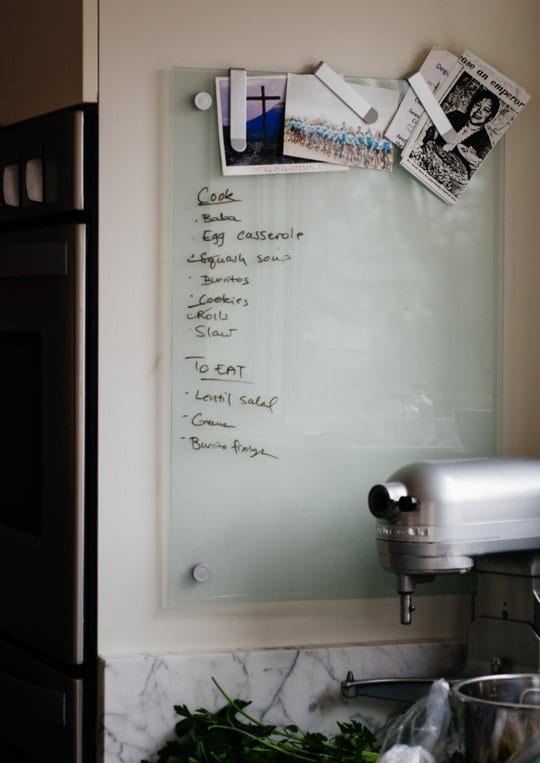 ANTIGUA GUATEMALA
ase an emperor
Cook
· Baba
· Egg casserole
- Squash soup
· Burritos
· Cookies
Rolls
· Slaw
TO EAT
- Lentil salad
- Burrito fixings